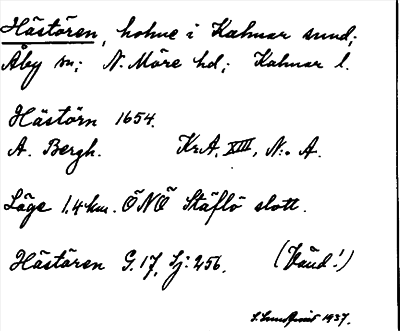 Hästören, holme i Kalmar sund;
Åby sn; N. Möre hd; Kalmar l.
Hästörn 1654.
A. Bergh. Kr.A. XIII, N:o A.
Läge 1,4 km. ÖNÖ Stäflö slott.
Hästören G. 17, Sj: 256. (Vänd!)
1937.